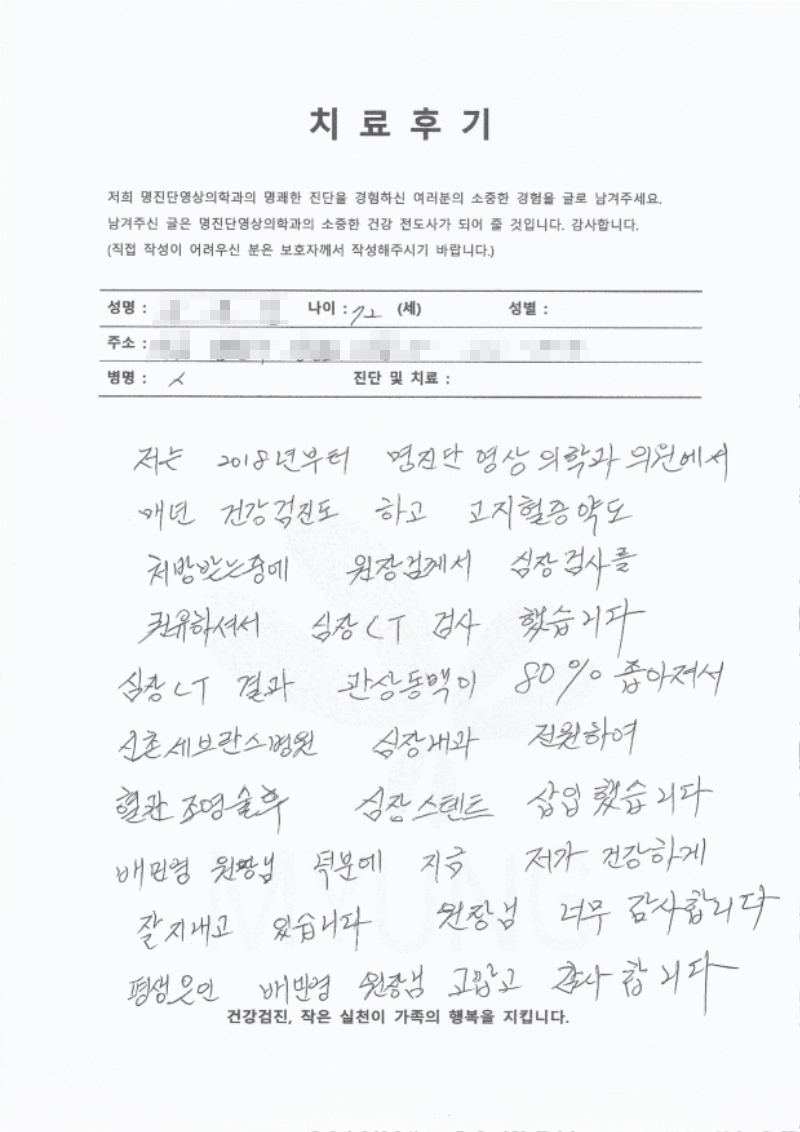 치료후기
저희 명진단영상의학과의 명쾌한 진단을 경험하신 여러분의 소중한 경험을 글로 남겨주세요.
남겨주신 글은 명진단영상의학과의 소중한 건강 전도사가 되어 줄 것입니다. 감사합니다.
(직접 작성이 어려우신 분은 보호자께서 작성해주시기 바랍니다.)
성명 : 나이 : 72 (세) 성별 :
주소 :
병명 : 진단 및 치료 :
저는 2018년부터 명진단영상의학과 의원에서
매년 건강검진도 하고 고지혈증약도
처방받는중에 원장님께서 심장검사를
권유하셔서 심장CT 검사 했습니다
심장CT 결과 관상동맥이 80% 좁아져서
신촌세브란스병원 심장내과 전원하여
혈관조영술후 심장스텐트 삽입했습니다
배민영 원장님 덕분에 지금 저가 건강하게
잘지내고 있습니다 원장님 너무 감사합니다
평생은인 배민영 원장님 고맙고 감사합니다
MYUNG
건강검진, 작은 실천이 가족의 행복을 지킵니다.